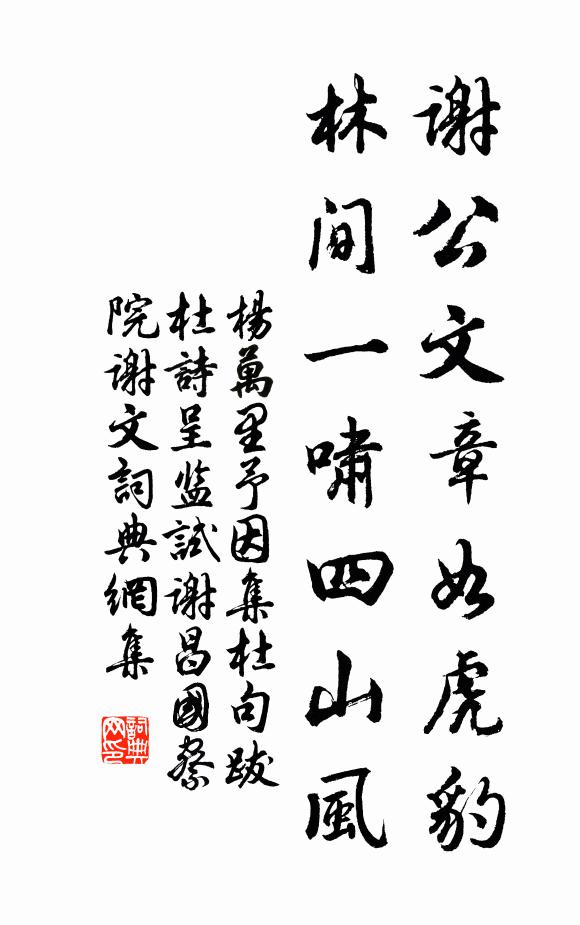 謝公文章如虎豹
林間一嘯四山風
楊萬里予因集杜句跋
杜詩呈监試謝昌國察
院謝文詞典網集
詞典
网印